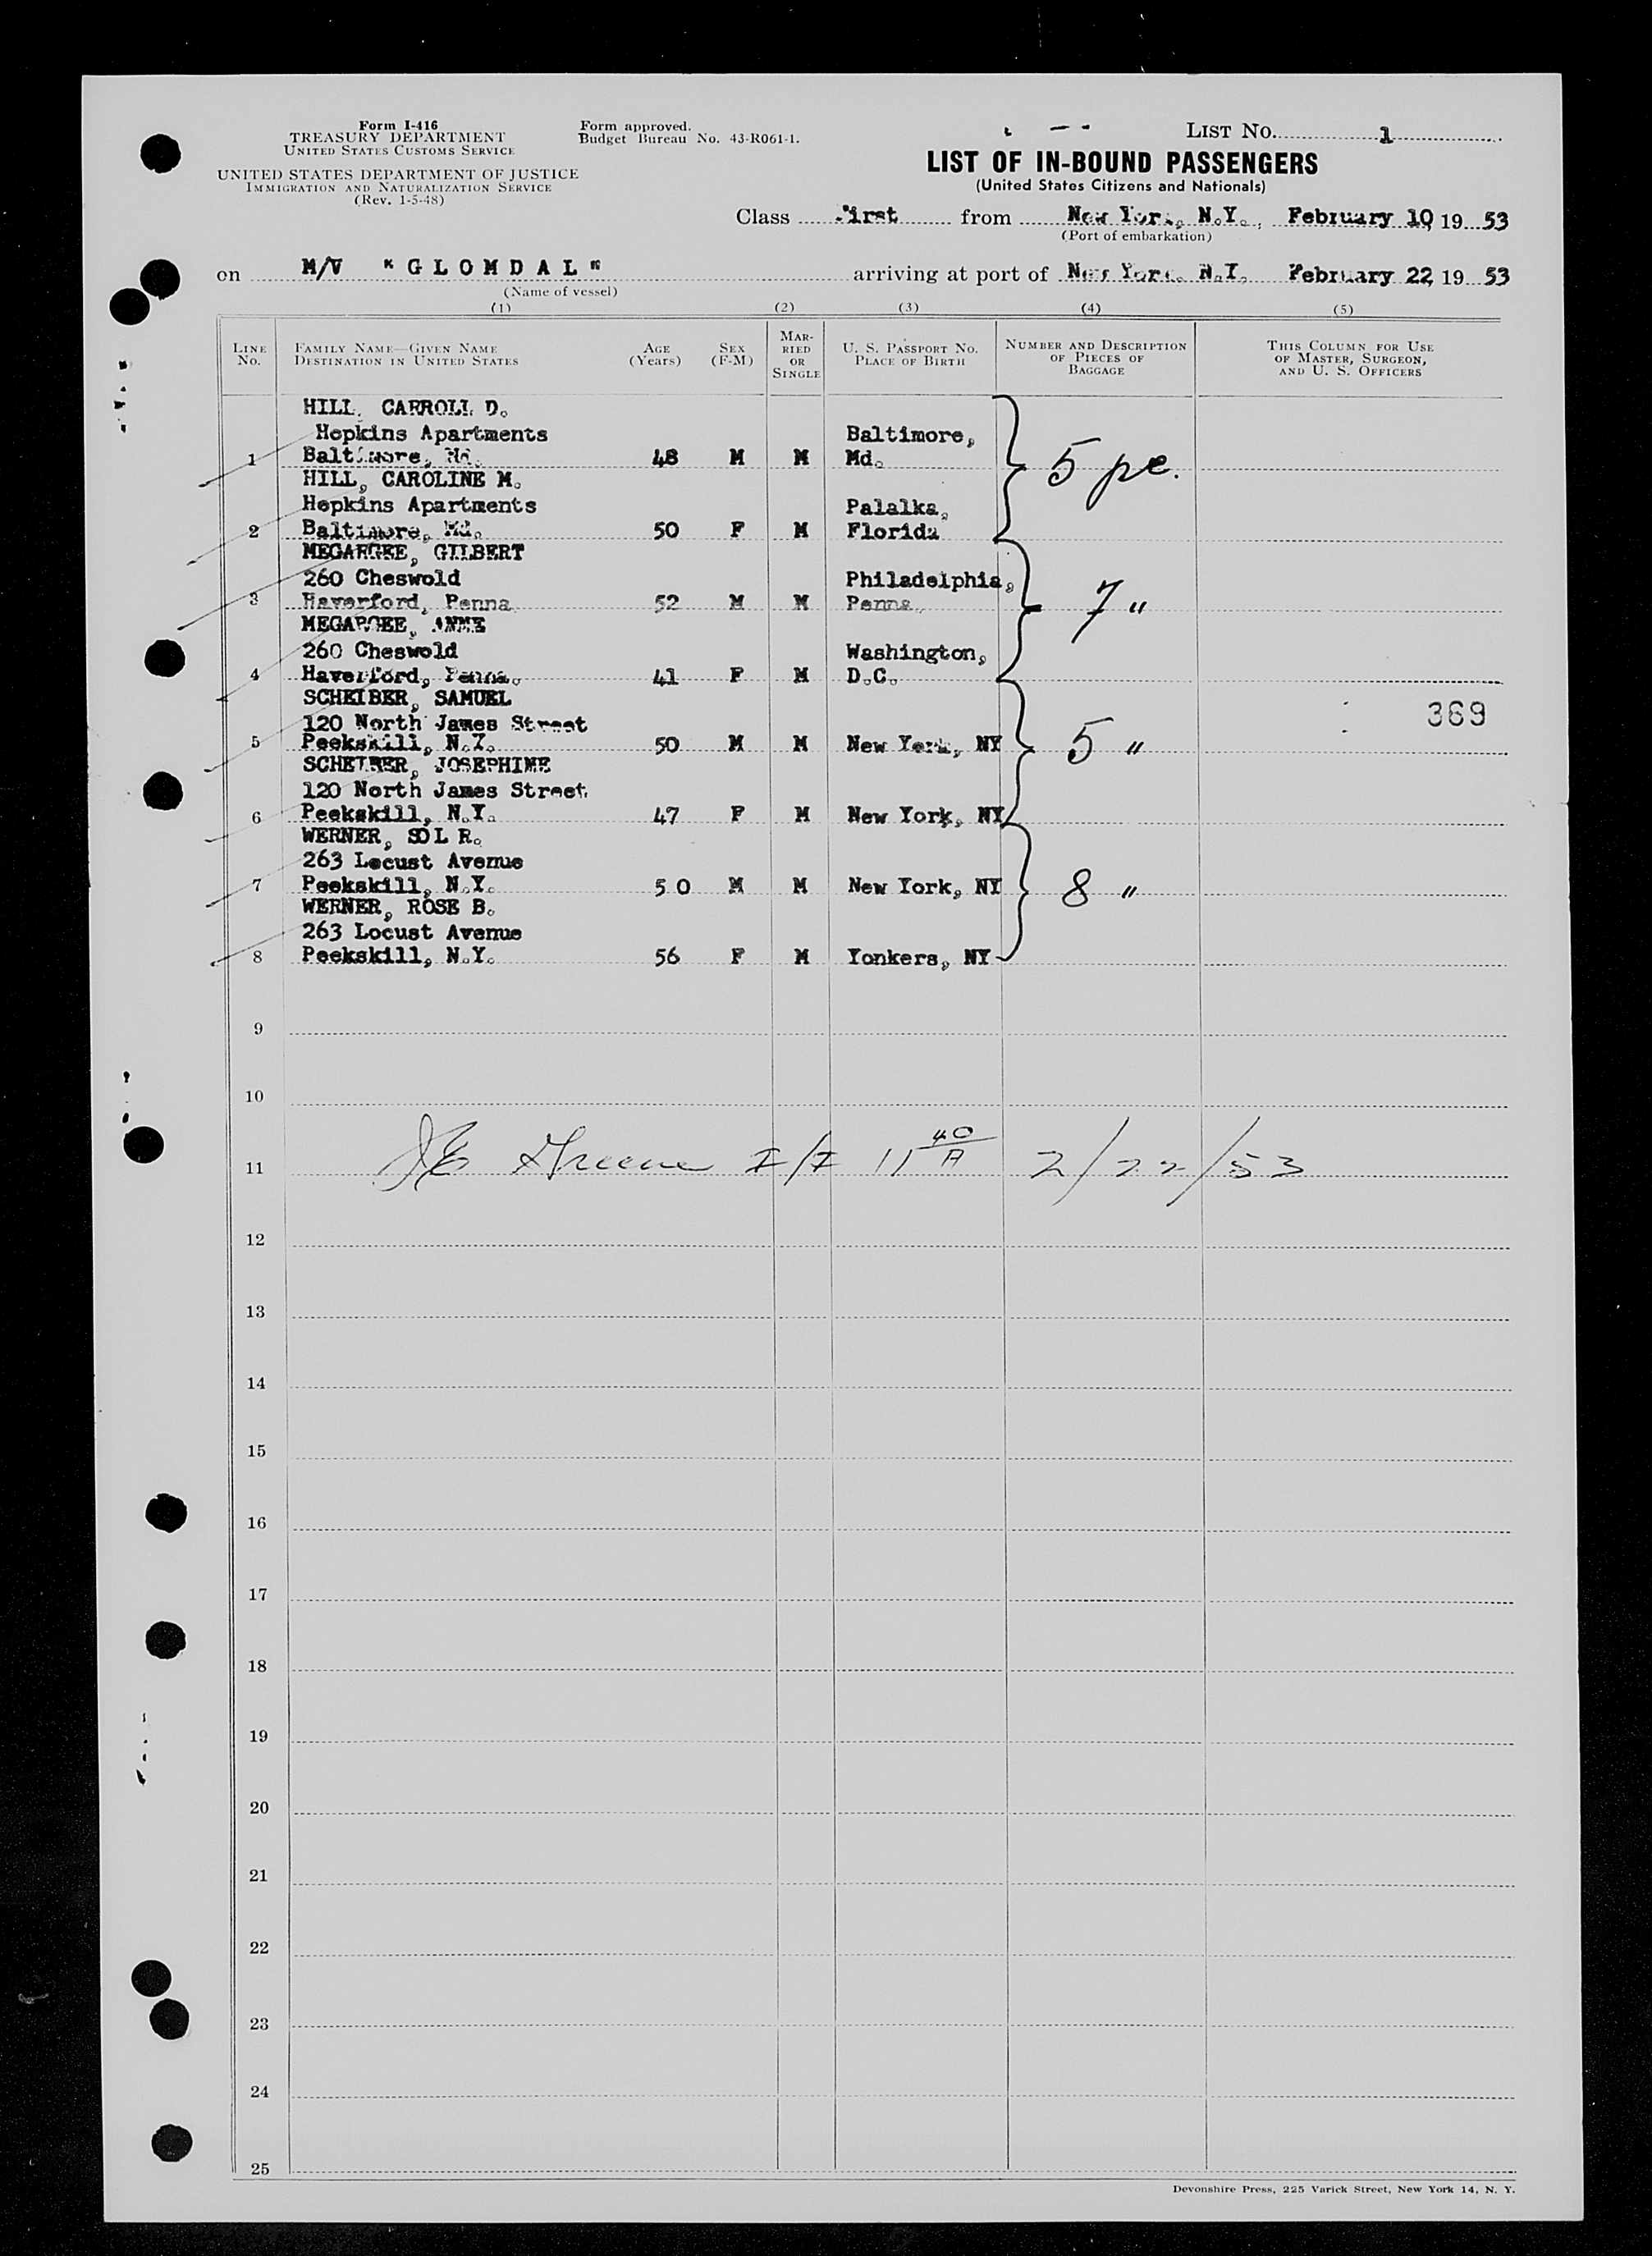 Form I-416
TREASURY DEPARTMENT
UNITED STATES CUSTOMS SERVICE
UNITED STATES DEPARTMENT OF JUSTICE
IMMIGRATION AND NATURALIZATION SERVICE
(Rev. 1-5-48)
Form approved.
Budget Bureau No. 43-R061-1.
LIST No. 1
LIST OF IN-BOUND PASSENGERS
(United States Citizens and Nationals)
Class First from New York, N.Y., February 10, 19 53
(Port of embarkation)
on M/V "GLOMDAL" arriving at port of New York, N.Y. February 22, 19 53
(Name of vessel)
(1) (2) (3) (4) (5)
LINE No. FAMILY NAME—GIVEN NAME DESTINATION IN UNITED STATES AGE (Years) SEX (F-M) MAR-RIED OR SINGLE U. S. PASSPORT No. PLACE OF BIRTH NUMBER AND DESCRIPTION OF PIECES OF BAGGAGE THIS COLUMN FOR USE OF MASTER, SURGEON, AND U. S. OFFICERS
HILL, CARROLL D.
Hopkins Apartments Baltimore,
1 Baltimore, Md. 48 M M Md. 5 pc.
HILL, CAROLINE M.
Hopkins Apartments Palalka,
2 Baltimore, Md. 50 F M Florida
MEGARGEE, GILBERT
260 Cheswold Philadelphia,
3 Haverford, Penna 52 M M Penna. 7 "
MEGARGEE, ANNE
260 Cheswold Washington,
4 Haverford, Penna. 41 F M D.C.
SCHEIBER, SAMUEL
369
120 North James Street
5 Peekskill, N.Y. 50 M M New York, NY 5 "
SCHEIBER, JOSEPHINE
120 North James Street
6 Peekskill, N.Y. 47 F M New York, NY
WERNER, SOL R.
263 Locust Avenue
7 Peekskill, N.Y. 50 M M New York, NY 8 "
WERNER, ROSE B.
263 Locust Avenue
8 Peekskill, N.Y. 56 F M Yonkers, NY
9
10
11 Greene I/I 11 40 A 2/22/53
12
13
14
15
16
17
18
19
20
21
22
23
24
25
Devonshire Press, 225 Varick Street, New York 14, N. Y.